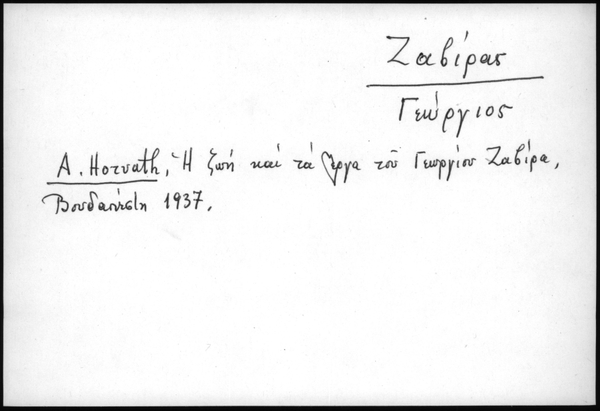 Ζαβίρας
Γεώργιος
A. Horvath, Ἡ ζωή καί τά ἔργα τοῦ Γεωργίου Ζαβίρα,
Βουδαπέστη 1937.